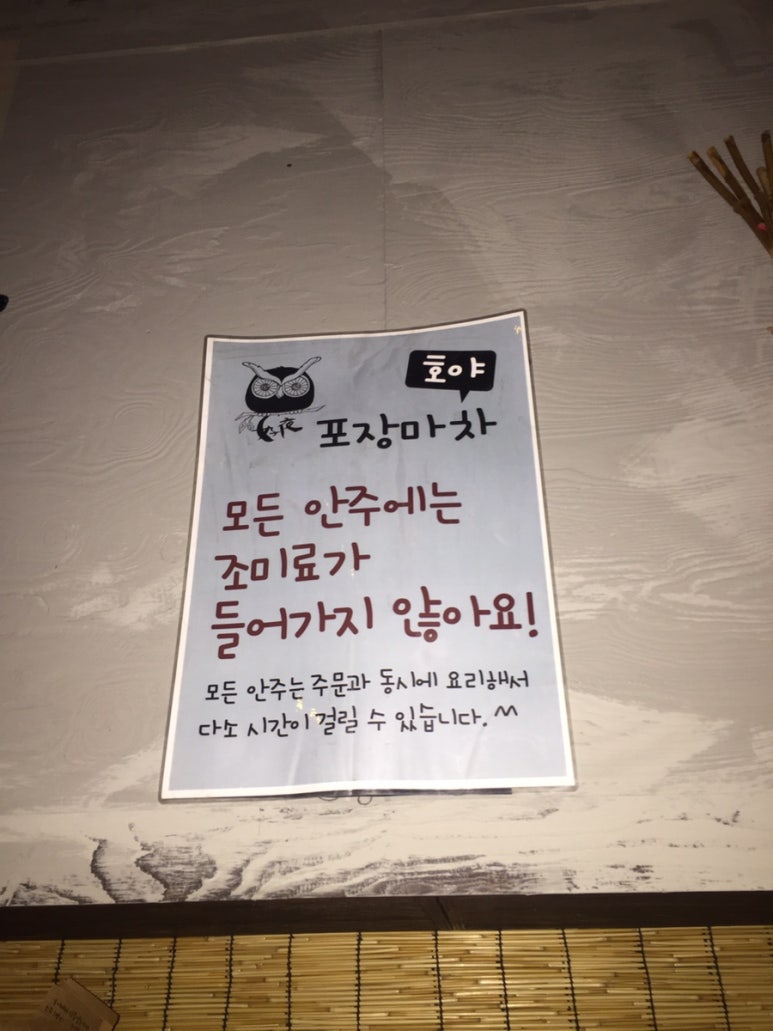 호야
포장마차
모든 안주에는
조미료가
들어가지 않아요!
모든 안주는 주문과 동시에 요리해서
다소 시간이 걸릴 수 있습니다.^^